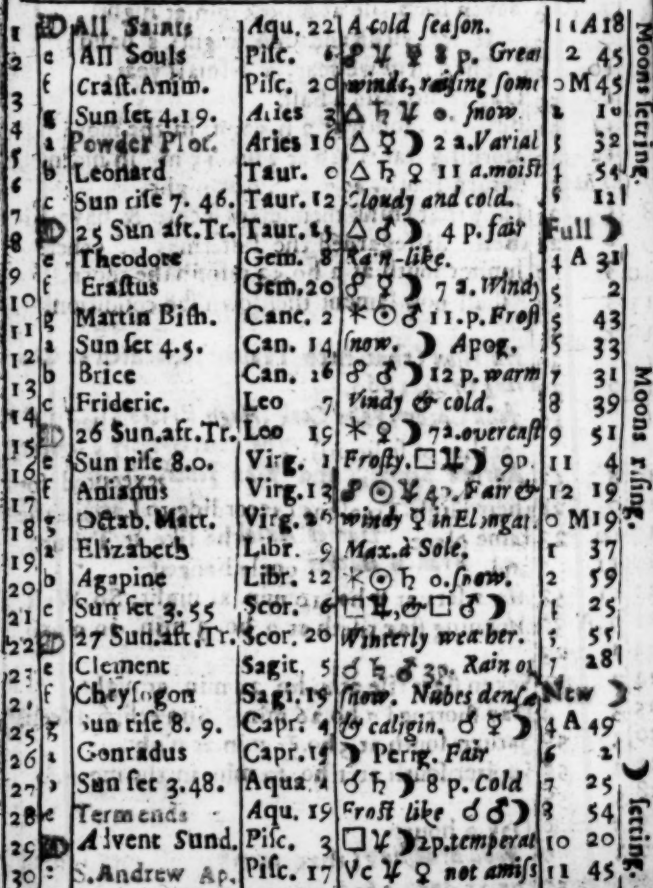 1 D All Saints Aqu. 22 A cold ſeaſon. 11 A 18
2 e All Souls Piſc. 6 ☍ ♃ ☿ 8 p. Great 2 45
3 f Craſt. Anim. Piſc. 20 winds, raiſing ſome 0 M 45
4 g Sun ſet 4.19. Aries 3 △ ♄ ♃ ſnow 2 10
5 a Powder Plot. Aries 16 △ ☿ ☽ 2 a. Variab 3 32
6 b Leonard Taur. 0 △ ♄ ♀ 11 a. moiſt 4 54
7 c Sun riſe 7. 46. Taur. 12 Cloudy and cold. 5 12
8 D 25 Sun aft. Tr. Taur. 25 △ ♂ ☽ 4 p. fair Full ☽
9 e Theodore Gem. 8 Rain-like. 4 A 31
10 f Eraſtus Gem. 20 ☍ ☿ ☽ 7 a. Windy 5 2
11 g Martin Biſh. Canc. 2 ⚹ ☉ ♂ 11. p. Froſt 5 43
12 a Sun ſet 4.5. Can. 14 ſnow. ☽ Apog. 5 33
13 b Brice Can. 26 ☍ ♂ ☽ 12 p. warm 7 31
14 c Frideric. Leo 7 Windy & cold. 8 39
15 D 26 Sun. aft. Tr. Leo 19 ⚹ ♀ ☽ 7 a. overcaſt 9 51
16 e Sun riſe 8.0. Virg. 1 Froſty. □ ♃ ☽ 9 p. 11 4
17 f Anianus Virg. 13 ☍ ☉ ♃ 4 p. Fair & 12 19
18 g Octab. Mart. Virg. 26 windy ☿ in Elongat. 0 M 19
19 a Elizabeth Libr. 9 Max. à Sole. 1 37
20 b Agapine Libr. 22 ⚹ ☉ ♄ 0. ſnow. 2 59
21 c Sun ſet 3.55 Scor. 6 □ ♃, & □ ♂ ☽ 4 25
22 D 27 Sun. aft. Tr. Scor. 20 Winterly weather. 5 55
23 e Clement Sagit. 5 ☌ ♄ ♂ 3 p. Rain or 7 28
24 f Chryſogon Sagi. 19 ſnow. Nubes denſæ New ☽
25 g Sun riſe 8. 9. Capr. 4 & caligin. ☌ ☿ ☽ 4 A 49
26 a Conradus Capr. 19 ☽ Perig. Fair 6 2
27 b Sun ſet 3.48. Aqua. 4 ☌ ♄ ☽ 8 p. Cold 7 25
28 e Term ends Aqu. 19 Froſt like ☌ ♂ ☽ 8 54
29 D Advent Sund. Piſc. 3 □ ♃ ☽ 2 p. temperat 10 20
30 S. Andrew Ap. Piſc. 17 Vc ♃ ♀ not amiſs 11 45
Moons ſetting.
Moons riſing.
☽ ſetting.